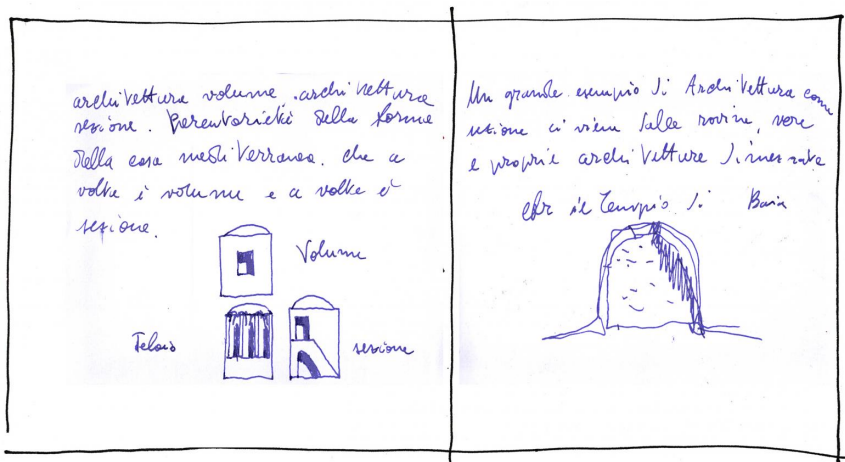 architettura volume. architettura
sezione. Perentorietà della forma
della casa mediterranea. che a
volte è volume e a volte è
sezione.
Volume
Telaio
sezione
Un grande esempio di Architettura come
sezione ci viene dalle rovine, vere
e proprie architetture dimezzate
cfr il Tempio di Baia